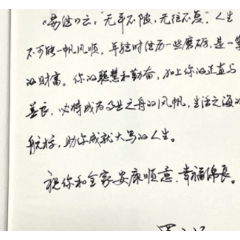 《易经》云，"无平不陂，无往不复"。人生
不可能一帆风顺。年轻时经历一些磨砺，是一
的财富。你的聪慧和勤奋，加上你的正直与
善良，必将成为事业之舟的风帆，生活之海的
航标，助你成就大写的人生。
祝你和全家安康顺意，幸福绵长。